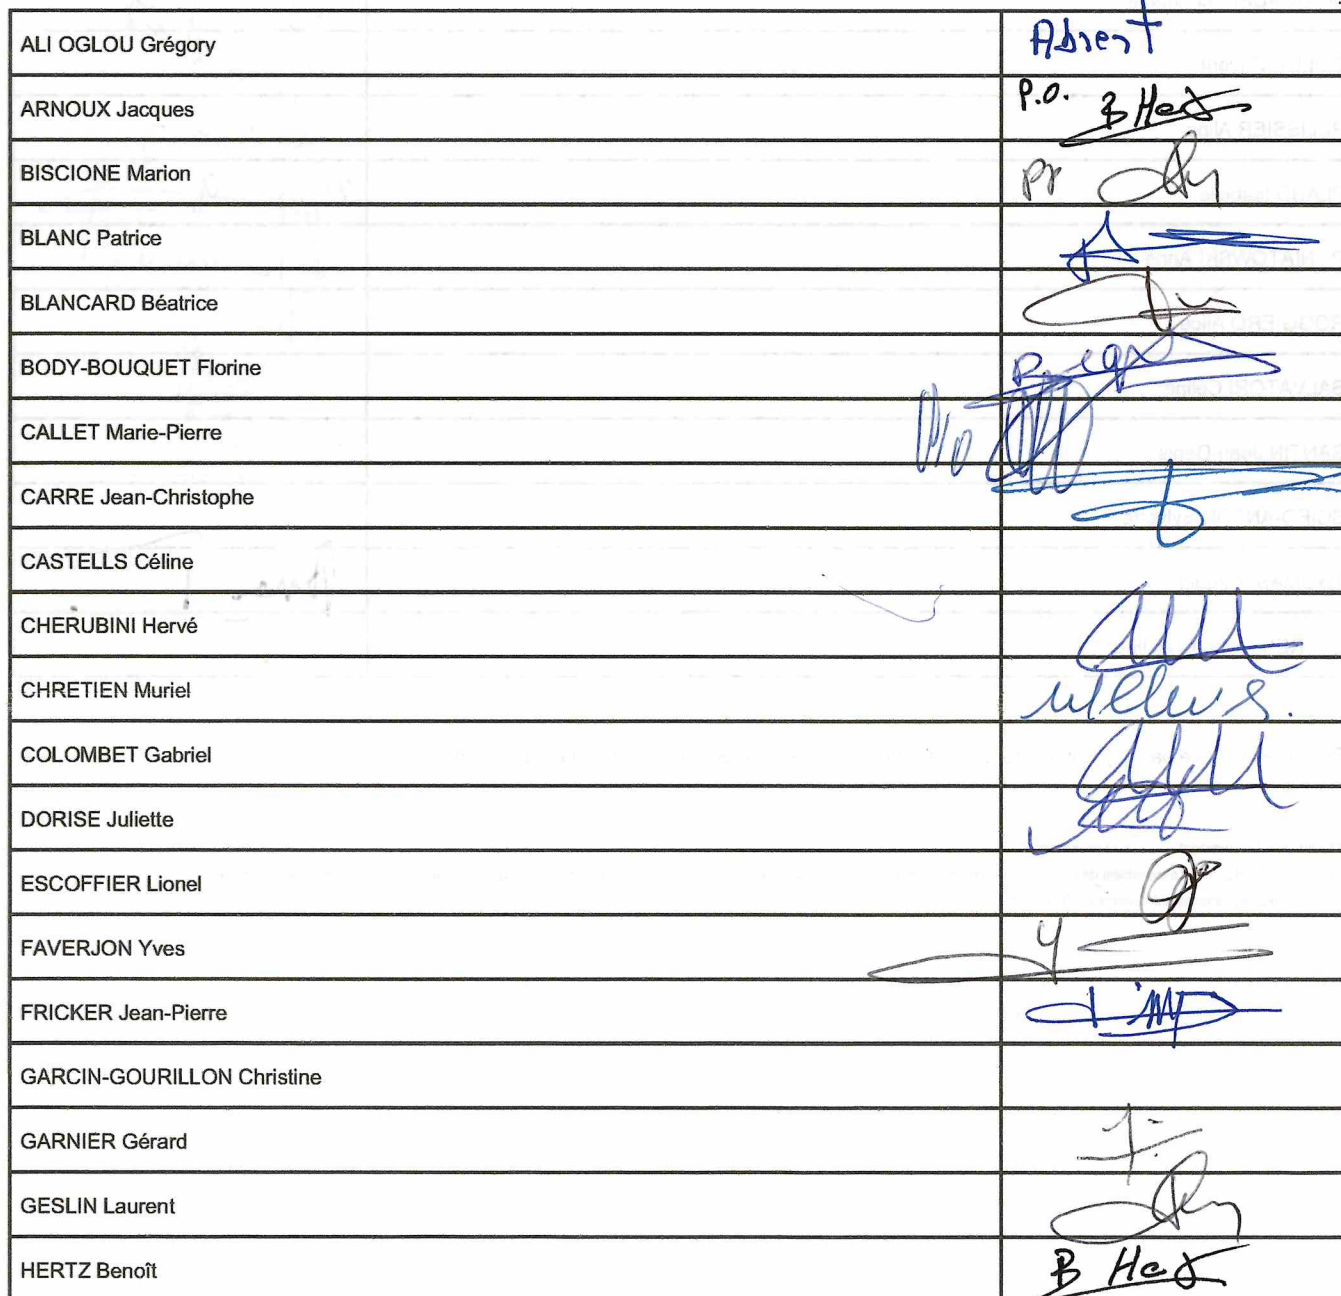 ALI OGLOU Grégory Absent
ARNOUX Jacques P.O. B Hertz
BISCIONE Marion pr
BLANC Patrice
BLANCARD Béatrice
BODY-BOUQUET Florine
CALLET Marie-Pierre P/o
CARRE Jean-Christophe
CASTELLS Céline
CHERUBINI Hervé
CHRETIEN Muriel
COLOMBET Gabriel
DORISE Juliette
ESCOFFIER Lionel
FAVERJON Yves
FRICKER Jean-Pierre
GARCIN-GOURILLON Christine
GARNIER Gérard
GESLIN Laurent
HERTZ Benoît B Hertz